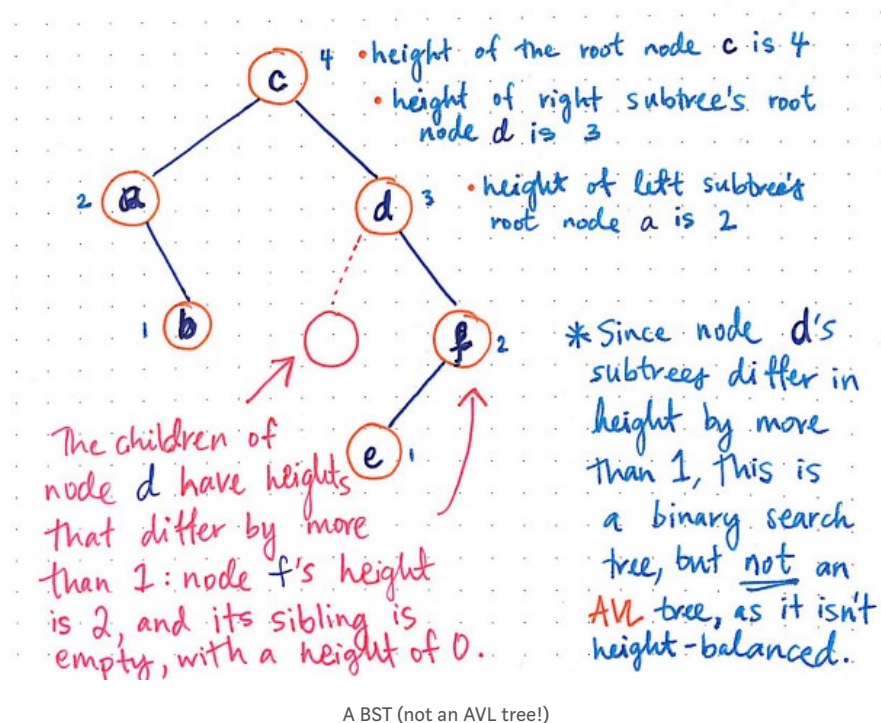 c 4
• height of the root node c is 4
• height of right subtree's root
node d is 3
2 a
d 3
• height of left subtree's
root node a is 2
1 b
f 2
e 1
The children of
node d have heights
that differ by more
than 1: node f's height
is 2, and its sibling is
empty, with a height of 0.
* Since node d's
subtrees differ in
height by more
than 1, this is
a binary search
tree, but not an
AVL tree, as it isn't
height-balanced.
A BST (not an AVL tree!)